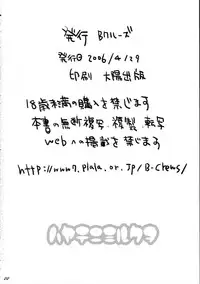 発行 Bクルーズ
発行日 2006/4/29
印刷 大陽出版
18歳未満の購入を禁じます
本書の無断複写・複製・転写
webへの掲載を禁じます
http://www7.plala.or.jp/B-Crews/
ハヤテニミルクヲ